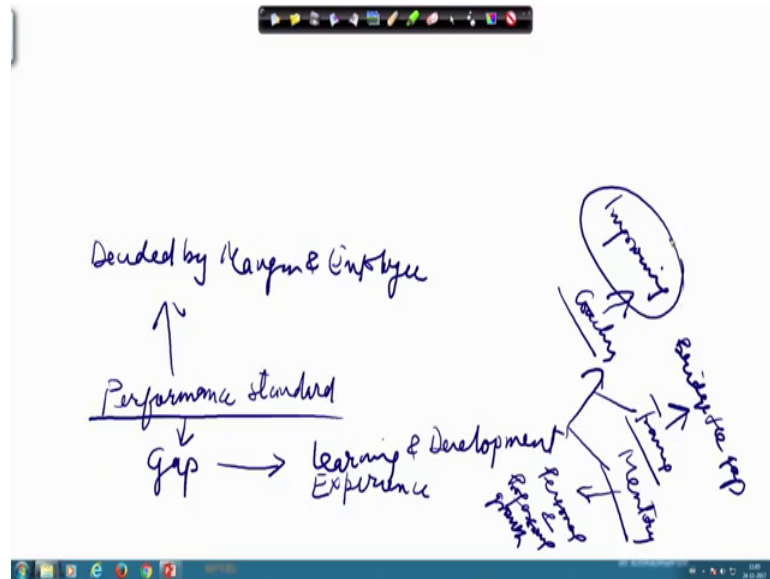 Decided by Manger & Employee
Performance standard
Gap
Learning & Development
Experience
Coaching
Improving
Training
Bridge the gap
Mentoring
Personal
&
Professional
growth